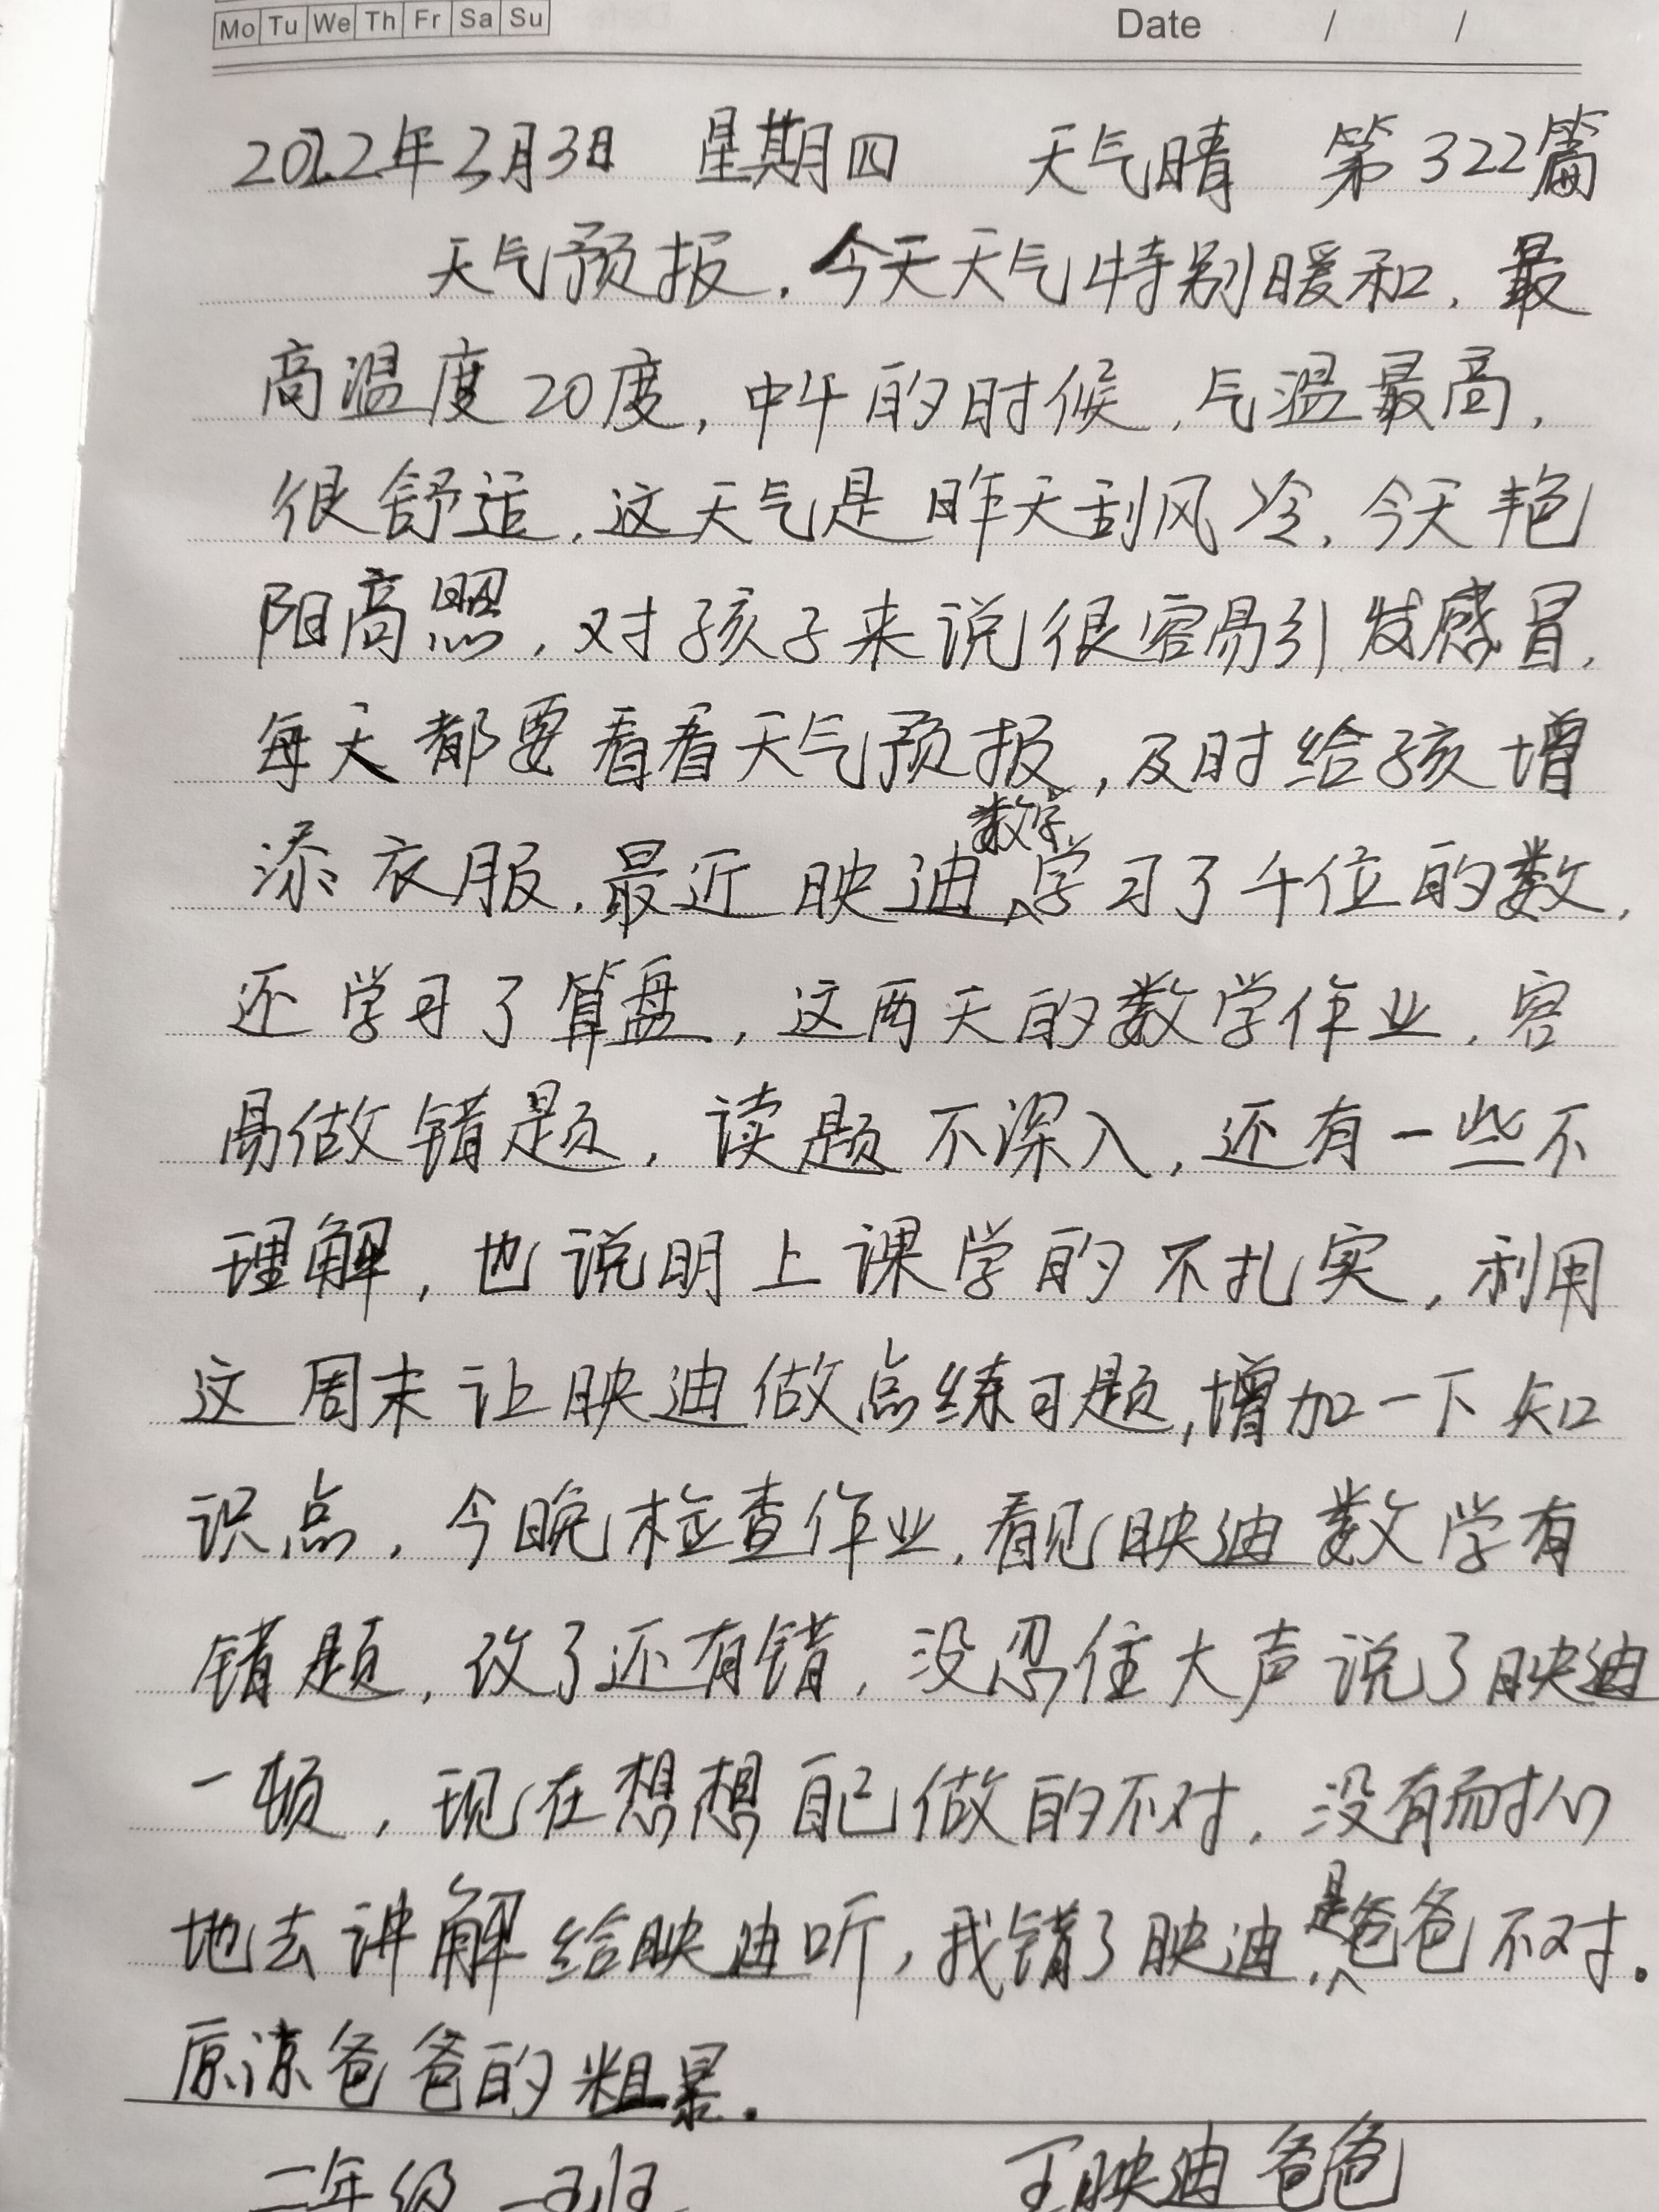 Mo Tu We Th Fr Sa Su Date / /
2022年3月3日 星期四 天气晴 第322篇
天气预报,今天天气特别暖和,最
高温度20度,中午的时候,气温最高,
很舒适,这天气是昨天刮风冷,今天艳
阳高照,对孩子来说很容易引发感冒,
每天都要看看天气预报,及时给孩增
添衣服,最近映迪数学学习了千位的数,
还学习了算盘,这两天的数学作业,容
易做错题,读题不深入,还有一些不
理解,也说明上课学的不扎实,利用
这周末让映迪做点练习题,增加一下知
识点,今晚检查作业,看见映迪数学有
错题,改了还有错,没忍住大声说了映迪
一顿,现在想想自己做的不对,没有耐心
地去讲解给映迪听,我错了映迪,是爸爸不对.
原谅爸爸的粗暴.
二年级一班 王映迪爸爸